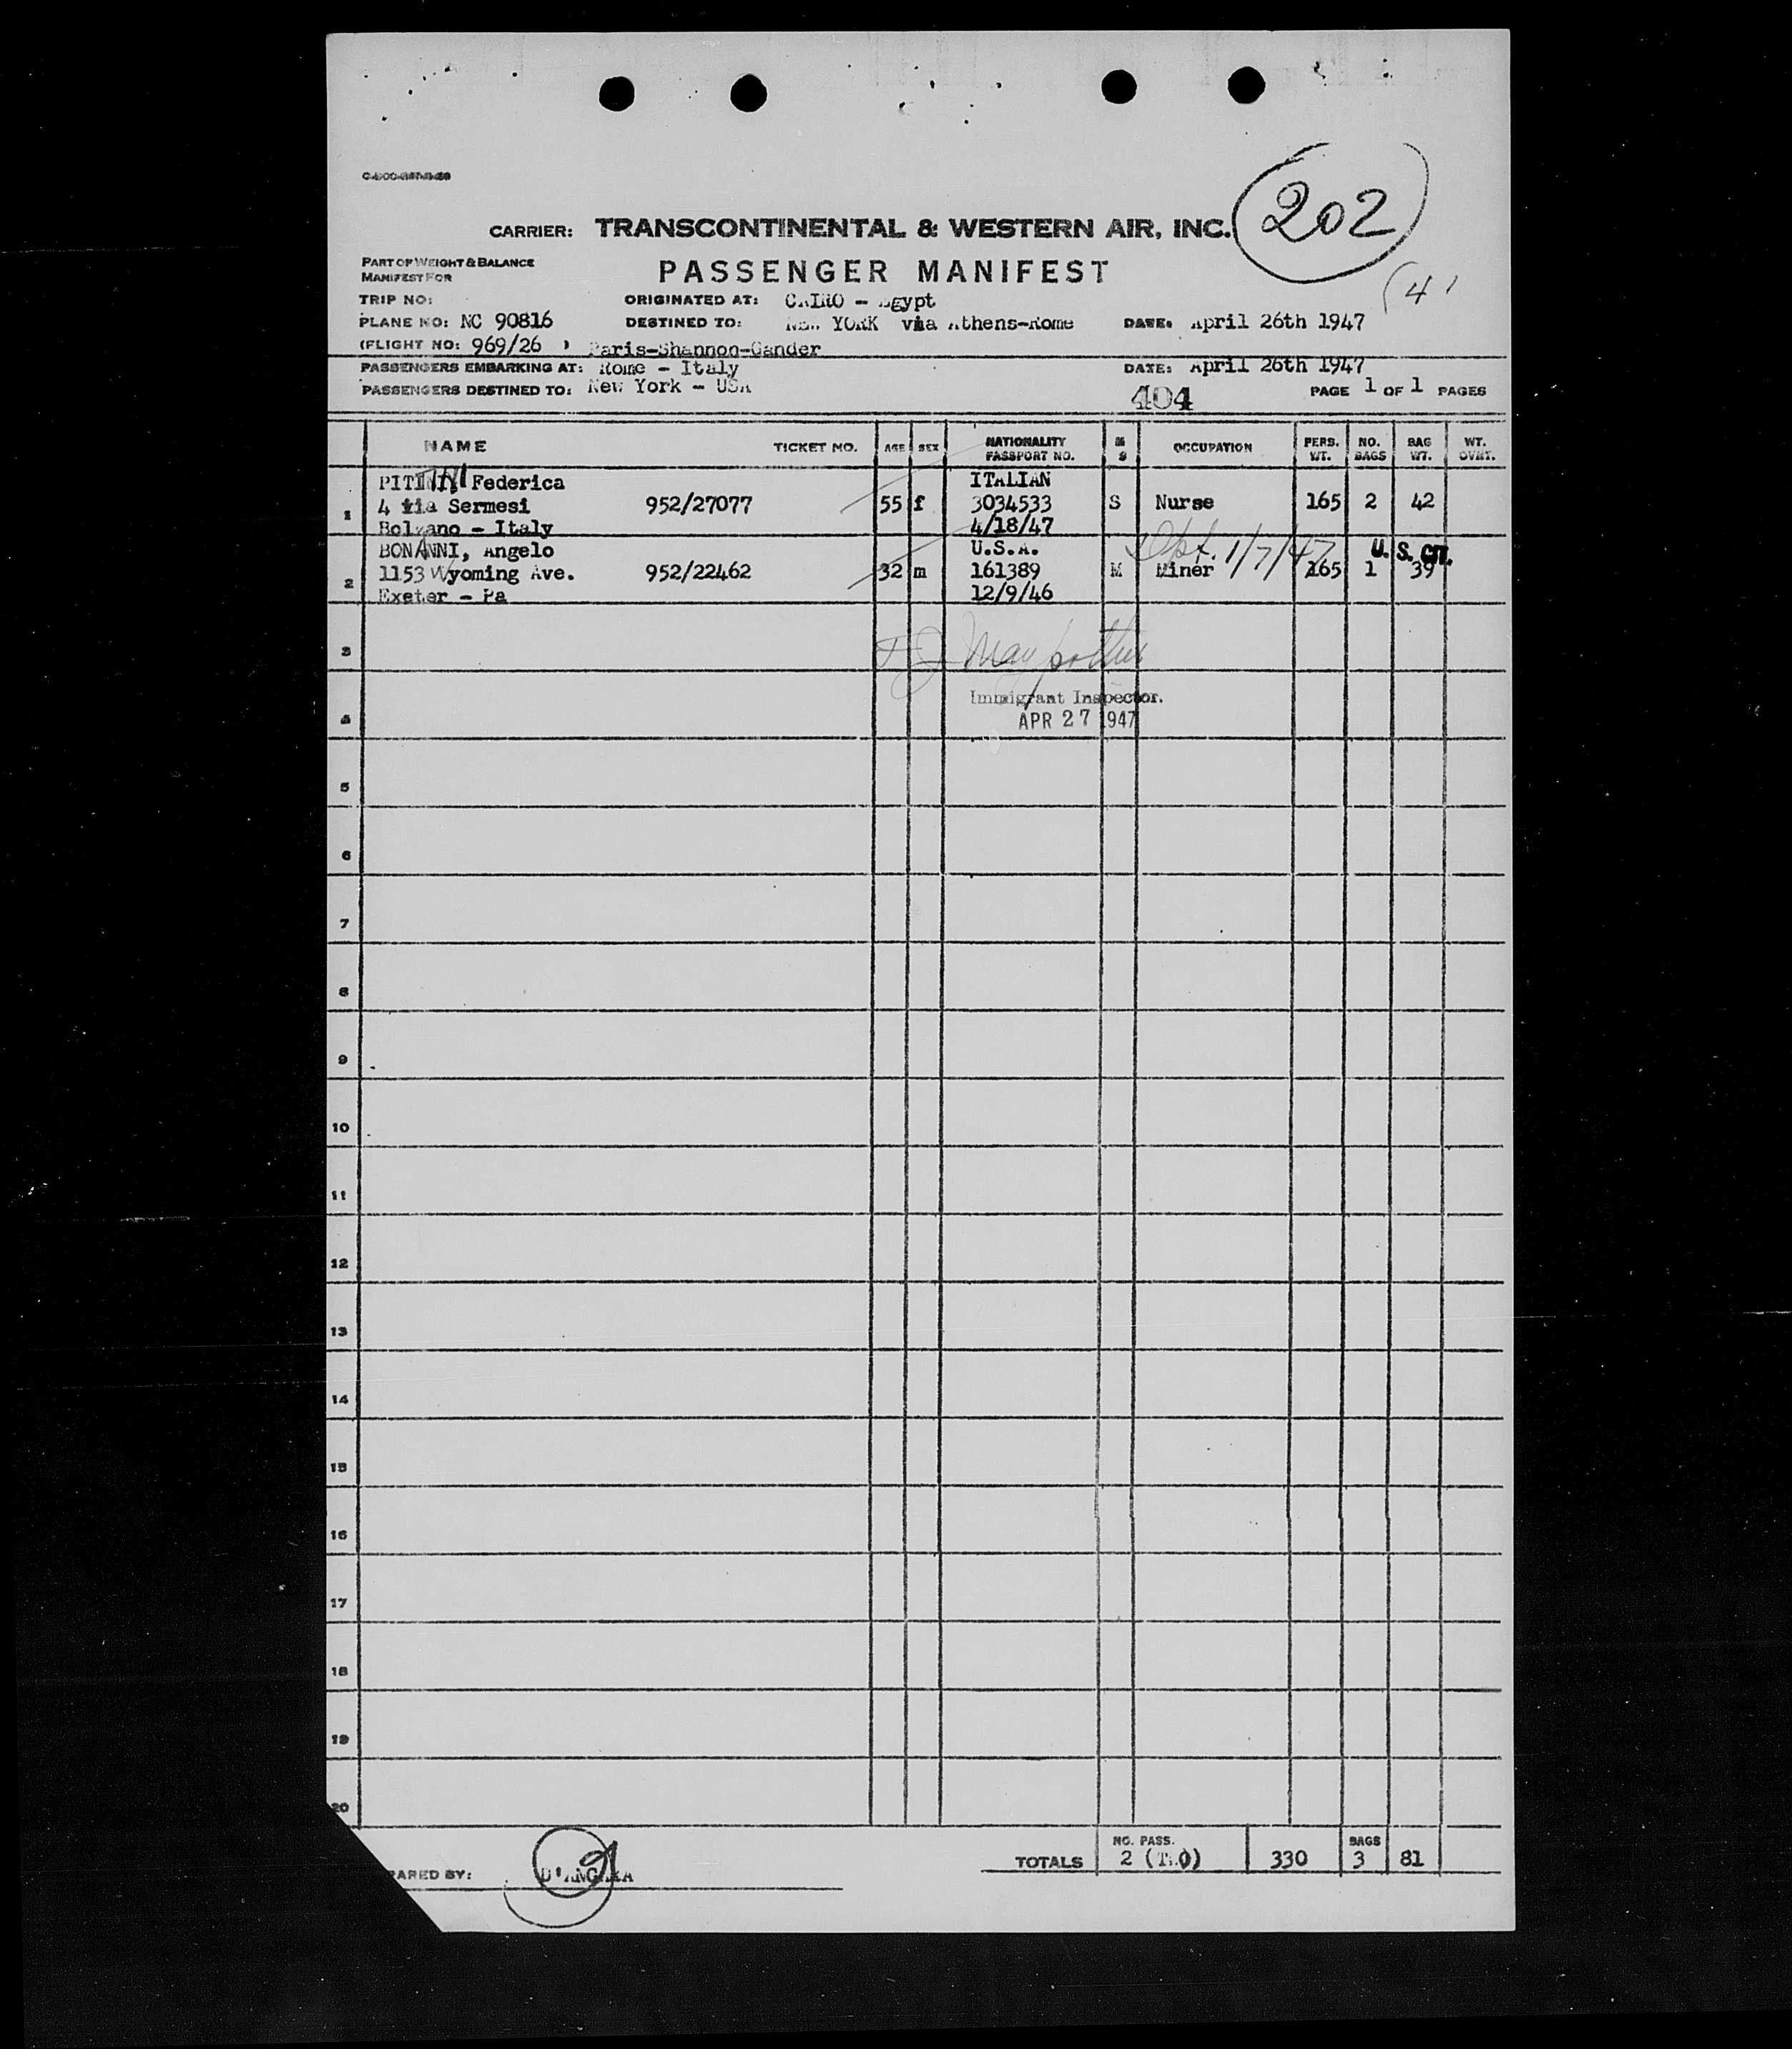 202
CARRIER: TRANSCONTINENTAL & WESTERN AIR, INC.
PART OF WEIGHT & BALANCE
MANIFEST FOR
PASSENGER MANIFEST
(4)
TRIP NO:
ORIGINATED AT: CAIRO - Egypt
PLANE NO: NC 90816
DESTINED TO: NEW YORK via Athens-Rome
DATE: April 26th 1947
(FLIGHT NO: 969/26 ) Paris-Shannon-Gander
PASSENGERS EMBARKING AT: Rome - Italy
DATE: April 26th 1947
PASSENGERS DESTINED TO: New York - USA
404
PAGE 1 OF 1 PAGES
NAME TICKET NO. AGE SEX NATIONALITY PASSPORT NO. M S OCCUPATION PERS. WT. NO. BAGS BAG WT. WT. OVRT.
PITTINI Federica ITALIAN
1 4 via Sermesi 952/27077 55 f 3034533 S Nurse 165 2 42
Bolzano - Italy 4/18/47
BONANNI, Angelo U.S.A. 1/7/47 U. S. CIT.
2 1153 Wyoming Ave. 952/22462 32 m 161389 M Miner 165 1 39
Exeter - Pa 12/9/46
3
Immigrant Inspector.
4 APR 27 1947
5
6
7
8
9
10
11
12
13
14
15
16
17
18
19
20
NO. PASS. BAGS
TOTALS 2 (TWO) 330 3 81
ARED BY: